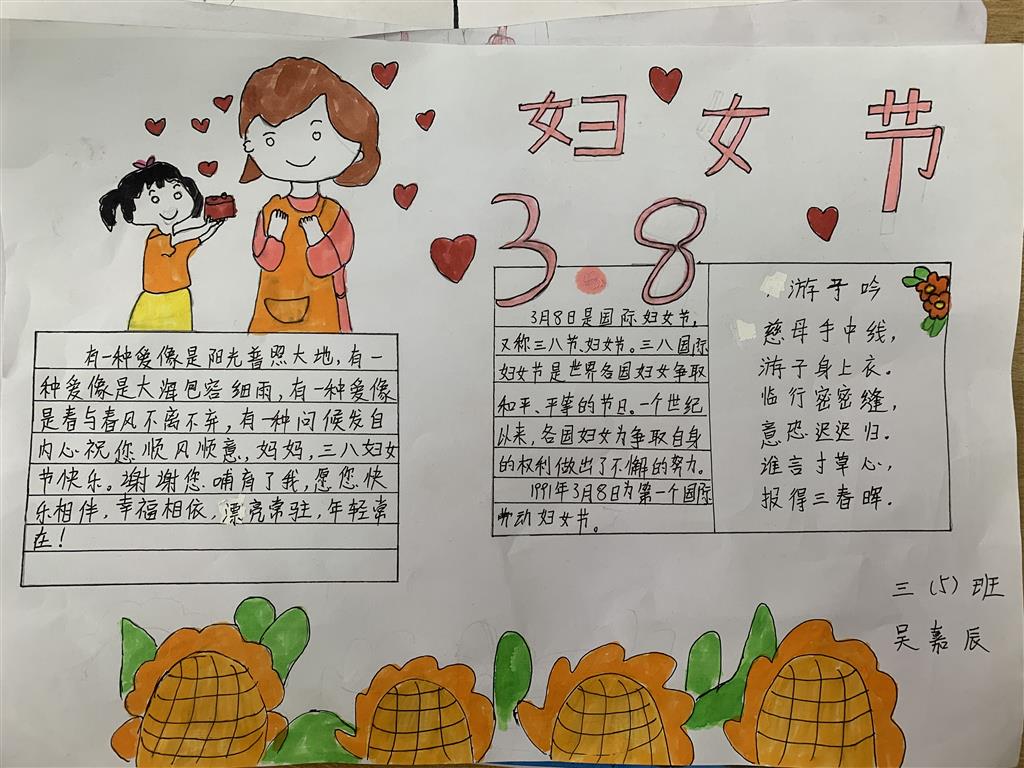 妇女节
3.8
有一种爱像是阳光普照大地,有一
种爱像是大海包容细雨,有一种爱像
是春与春风不离不弃,有一种问候发自
内心祝您顺风顺意,妈妈,三八妇女
节快乐。谢谢您哺育了我,愿您快
乐相伴,幸福相依,漂亮常驻,年轻常
在!
3月8日是国际妇女节,
又称三八节、妇女节。三八国际
妇女节是世界各国妇女争取
和平、平等的节日。一个世纪
以来,各国妇女为争取自身
的权利做出了不懈的努力。
1991年3月8日为第一个国际
劳动妇女节。
游子吟
慈母手中线,
游子身上衣。
临行密密缝,
意恐迟迟归。
谁言寸草心,
报得三春晖.
三(5)班
吴嘉辰